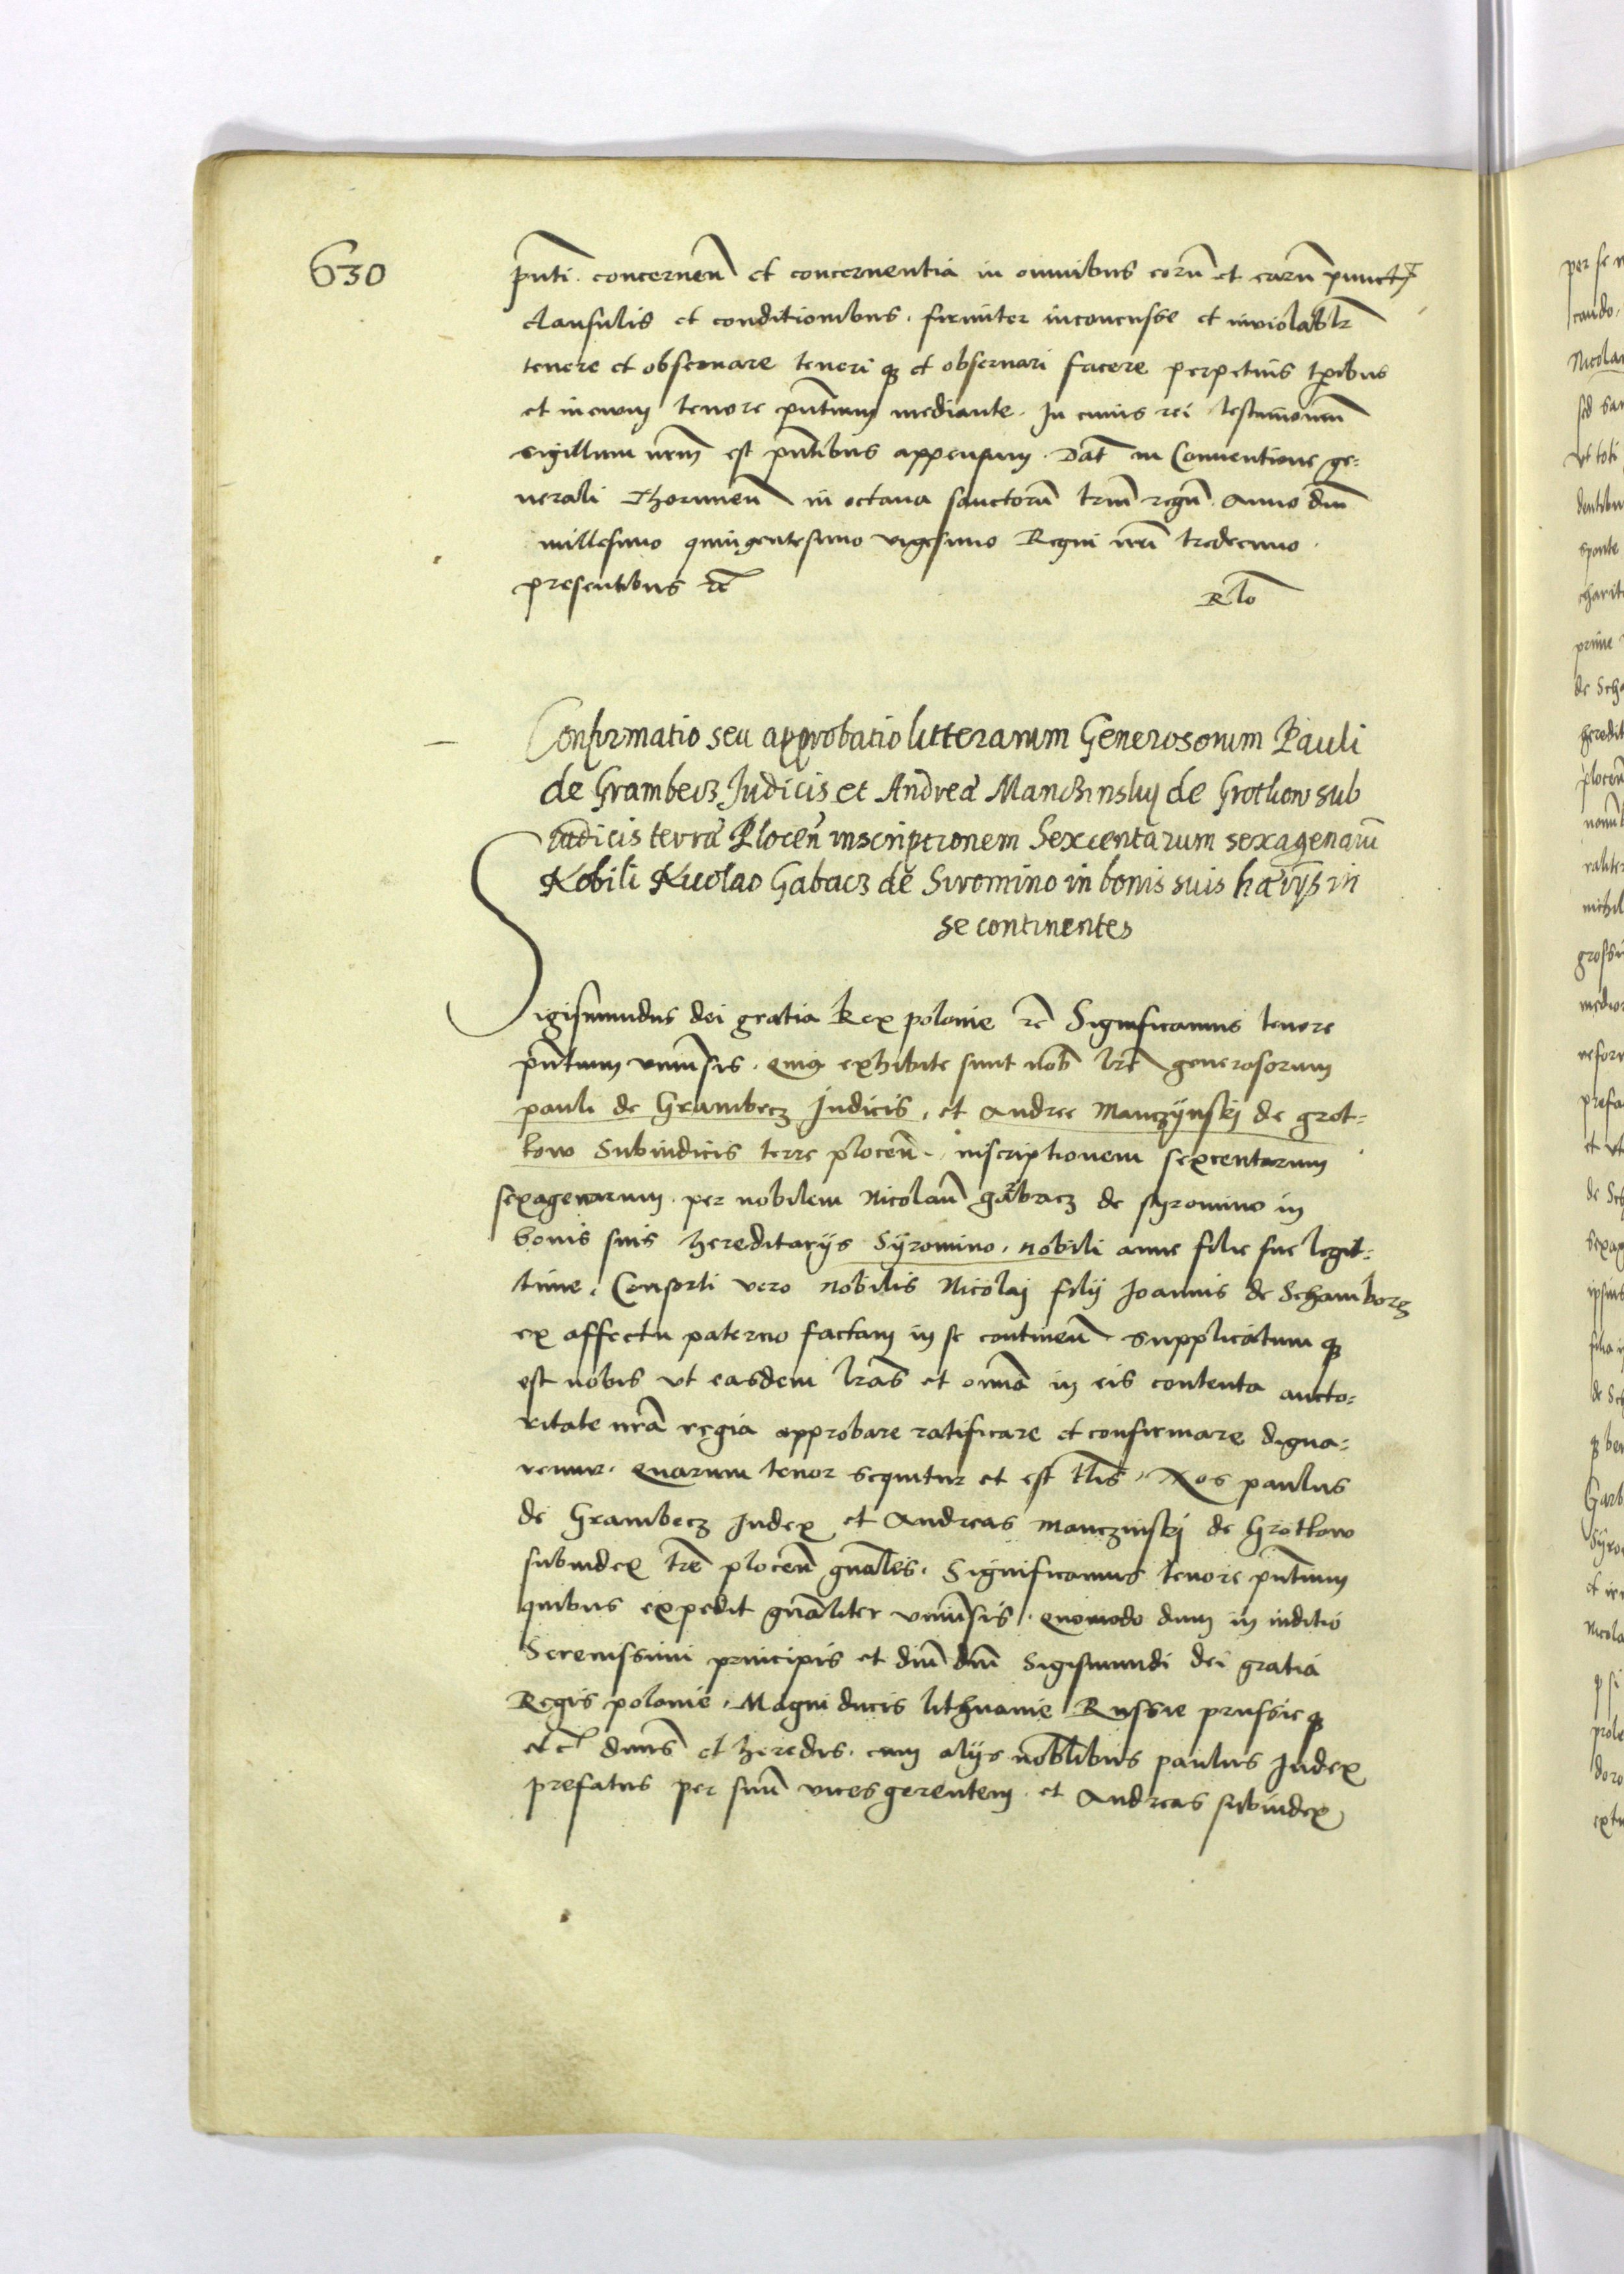 630
pn̄ti concernen̄ et concernentia in omnibus eorū et earū punctꝭ
clausulis et conditionibus. firmiter inconcusse et inviolabłr
tenere et observare teneriqꝫ et observari facere perpetuis tꝑibus
et in evum tenore pn̄tium mediante. In cuius rei testimoniū
sigillum nr̄m est pn̄tibus appensum. Dat̄ in Conventione ge=
nerali Thorunien̄ in octava sanctorū triū regū. Anno dn̄i
millesimo quingentesimo vigesimo Regni nr̄i tredecimo.
presentibus ꝛc̄
Rło
Confirmatio seu approbatio litterarum Generosorum Pauli
de Grambecz Judicis et Andreæ Manczinskij de Grotkow sub
iudicis terræ Plocen̄ inscriptionem Sexcentarum sexagenarū
Nobili Nicolao Gabacz de Siromino in bonis suis hæ\rijs in
se continentes
Sigismundus dei gratia Rex polonie ꝛc̄ Significamus tenore
pn̄tium univ̄sis. quiꝫ exhibite sunt nob̄ lr̄e generosorum
pauli de Grambecz Judicis, et Andree Manczÿnskj de grot=
kow Subiudicis terre plocen̄. inscriptionem sexcentarum
sexagenarum. per nobilem Nicolaū garbacz de syromino in
bonis suis hereditarijs Sÿromino. nobili anne filie sue legit=
time. Consorti vero nobilis Nicolaj filij Joannis de Schamborz
ex affectu paterno factam in se continen̄. supplicatumqꝫ
est nobis ut easdem lr̄as et om̄ia in eis contenta aucto=
ritate nr̄a regia approbare ratificare et confirmare digna=
remur. Quarum tenor sequitur et est tłis. Nos paulus
de Grambecz Judex et Andreas Manczinskj de Grotkow
subiudex trē plocen̄ gn̄ales. Significamus tenore pn̄tium
quibus expedit gn̄aliter univ̄sis. quomodo dum in iuditio
Serenissimi principis et dn̄i dn̄i Sigismundi dei gratia
Regis polonie. Magni ducis lithuanie Russie prussieqꝫ
etc̄ domī et heredis. cum alijs nobłibus paulus Judex
prefatus per suū vicesgerentem. et Andreas subiudex